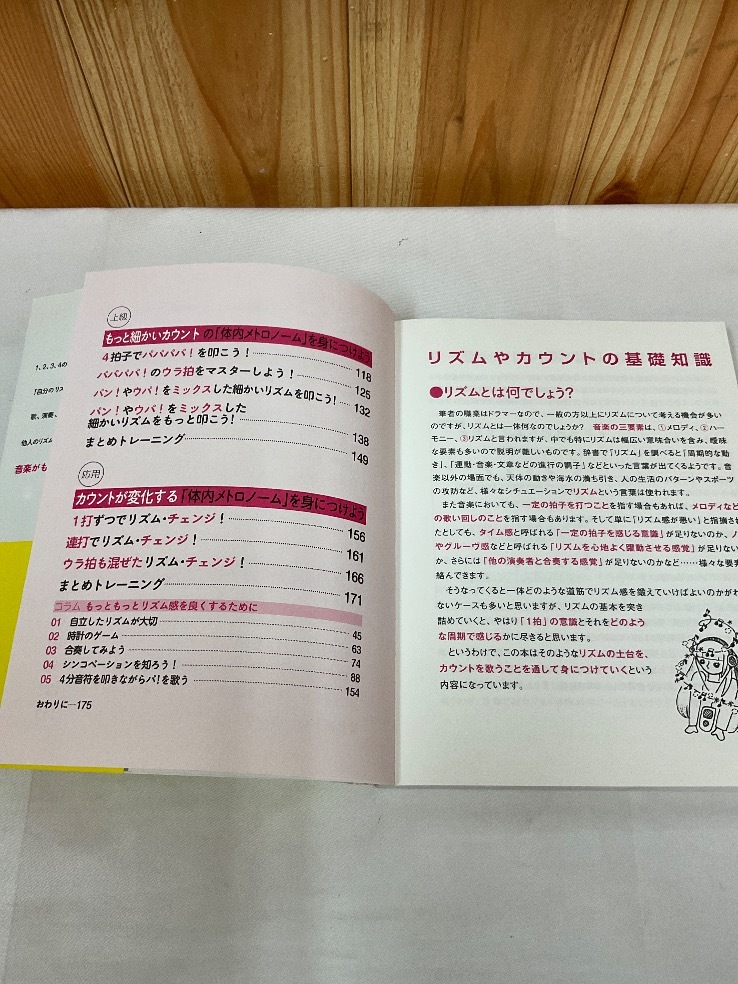 1、2、3、4の
「自分のリズ
歌、演奏、
他人のリズム
音楽がも
上級
もっと細かいカウントの「体内メトロノーム」を身につけよう
4拍子でパパパパ！を叩こう！ 118
パパパパ！のウラ拍をマスターしよう！ 125
パン！やウパ！をミックスした細かいリズムを叩こう！ 132
パン！やウパ！をミックスした
細かいリズムをもっと叩こう！ 138
まとめトレーニング 149
応用
カウントが変化する「体内メトロノーム」を身につけよう
1打ずつでリズム・チェンジ！ 156
連打でリズム・チェンジ！ 161
ウラ拍も混ぜたリズム・チェンジ！ 166
まとめトレーニング 171
コラム もっともっとリズム感を良くするために
01 自立したリズムが大切 45
02 時計のゲーム 63
03 合奏してみよう 74
04 シンコペーションを知ろう！ 88
05 4分音符を叩きながらパ！を歌う 154
おわりに…175
リズムやカウントの基礎知識
●リズムとは何でしょう？
筆者の職業はドラマーなので、一般の方以上にリズムについて考える機会が多い
のですが、リズムとは一体何なのでしょうか？ 音楽の三要素は、①メロディ、②ハー
モニー、③リズムと言われますが、中でも特にリズムは幅広い意味合いを含み、曖昧
な要素も多いので説明が難しいものです。辞書で「リズム」を調べると「周期的な動
き」、「運動・音楽・文章などの進行の調子」などといった言葉が出てくるようです。音
楽以外の場面でも、天体の動きや海水の満ち引き、人の生活のパターンやスポーツ
の攻防など、様々なシチュエーションでリズムという言葉は使われます。
また音楽においても、一定の拍子を打つことを指す場合もあれば、メロディなど
の歌い回しのことを指す場合もあります。そして単に「リズム感が悪い」と指摘され
たとしても、タイム感と呼ばれる「一定の拍子を感じる意識」が足りないのか、ノ
やグルーヴ感などと呼ばれる「リズムを心地よく躍動させる感覚」が足りない
か、さらには「他の演奏者と合奏する感覚」が足りないのかなど……様々な要素
絡んできます。
そうなってくると一体どのような道筋でリズム感を鍛えていけばよいのかがわ
ないケースも多いと思いますが、リズムの基本を突き
詰めていくと、やはり「1拍」の意識とそれをどのよう
な周期で感じるかに尽きると思います。
というわけで、この本はそのようなリズムの土台を、
カウントを歌うことを通して身につけていくという
内容になっています。